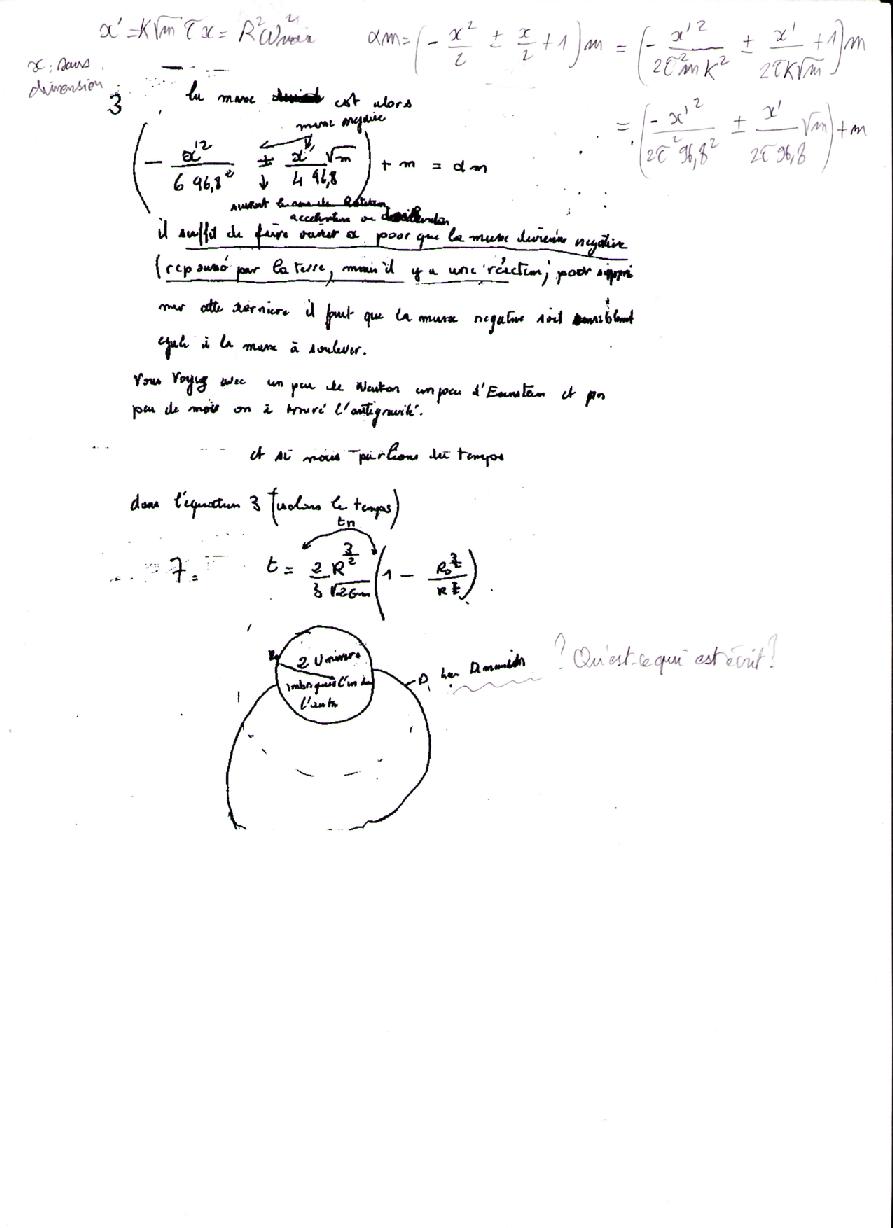 x' = K√m τ x = R²ω²
αm = (- x²/2 ± x/2 + 1) m = (- x'²/2τ²mK² ± x'/2τK√m + 1) m
x: sans
dimension
= (- x'²/2τ²96,8² ± x'/2τ96,8 √m) + m
3
la masse est alors
masse négative
(- x'²/6 96,8² ± x'/4 96,8 √m) + m = αm
suivant le sens de rotation
accélération ou
il suffit de faire varier α pour que la masse devienne négative
(repoussé par la terre, mais il y a une réaction; pour suppri
mer cette dernière il faut que la masse négative soit sensiblement
égale à la masse à soulever.
Vous voyez avec un peu de Newton un peu d'Einstein et pas
peu de mois on a trouvé l'antigravité.
et si nous parlions du temps
dans l'équation 3 (isolons le temps)
tn
7 = t = 2/3 R^3/2/√2Gm (1 - R₀^3/2/R^3/2)
2 Univers
imbriqués l'un dans
l'autre
? Qu'est-ce qui est écrit ?